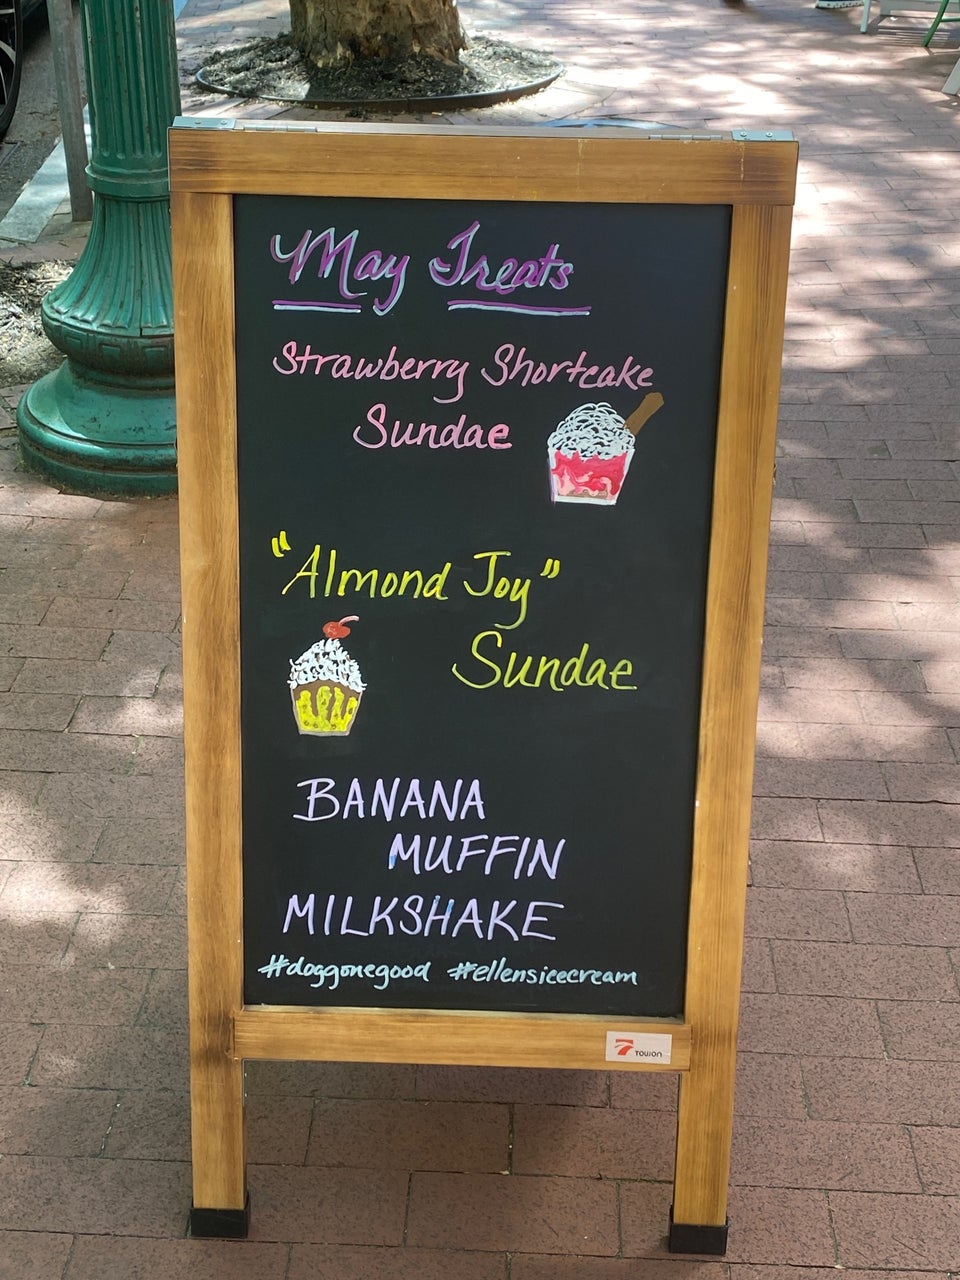 May Treats
Strawberry Shortcake
Sundae
"Almond Joy"
Sundae
BANANA
MUFFIN
MILKSHAKE
#doggonegood #ellensicecream
TOUION